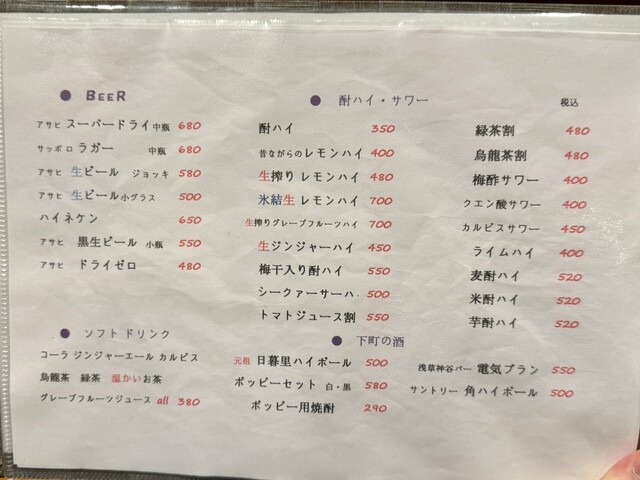 ● BEER
アサヒ スーパードライ 中瓶 680
サッポロ ラガー 中瓶 680
アサヒ 生ビール ジョッキ 580
アサヒ 生ビール 小グラス 500
ハイネケン 650
アサヒ 黒生ビール 小瓶 550
アサヒ ドライゼロ 480
● ソフトドリンク
コーラ ジンジャーエール カルピス
烏龍茶 緑茶 温かいお茶
グレープフルーツジュース all 380
● 酎ハイ・サワー
税込
酎ハイ 350
昔ながらのレモンハイ 400
生搾り レモンハイ 480
氷結生 レモンハイ 700
生搾りグレープフルーツハイ 700
生ジンジャーハイ 450
梅干入り酎ハイ 550
シークァーサーハ. 500
トマトジュース割 550
緑茶割 480
烏龍茶割 480
梅酢サワー 400
クエン酸サワー 400
カルピスサワー 450
ライムハイ 400
麦酎ハイ 520
米酎ハイ 520
芋酎ハイ 520
● 下町の酒
元祖 日暮里ハイボール 500
ホッピーセット 白・黒 580
ホッピー用焼酎 290
浅草神谷バー 電気ブラン 550
サントリー 角ハイボール 500